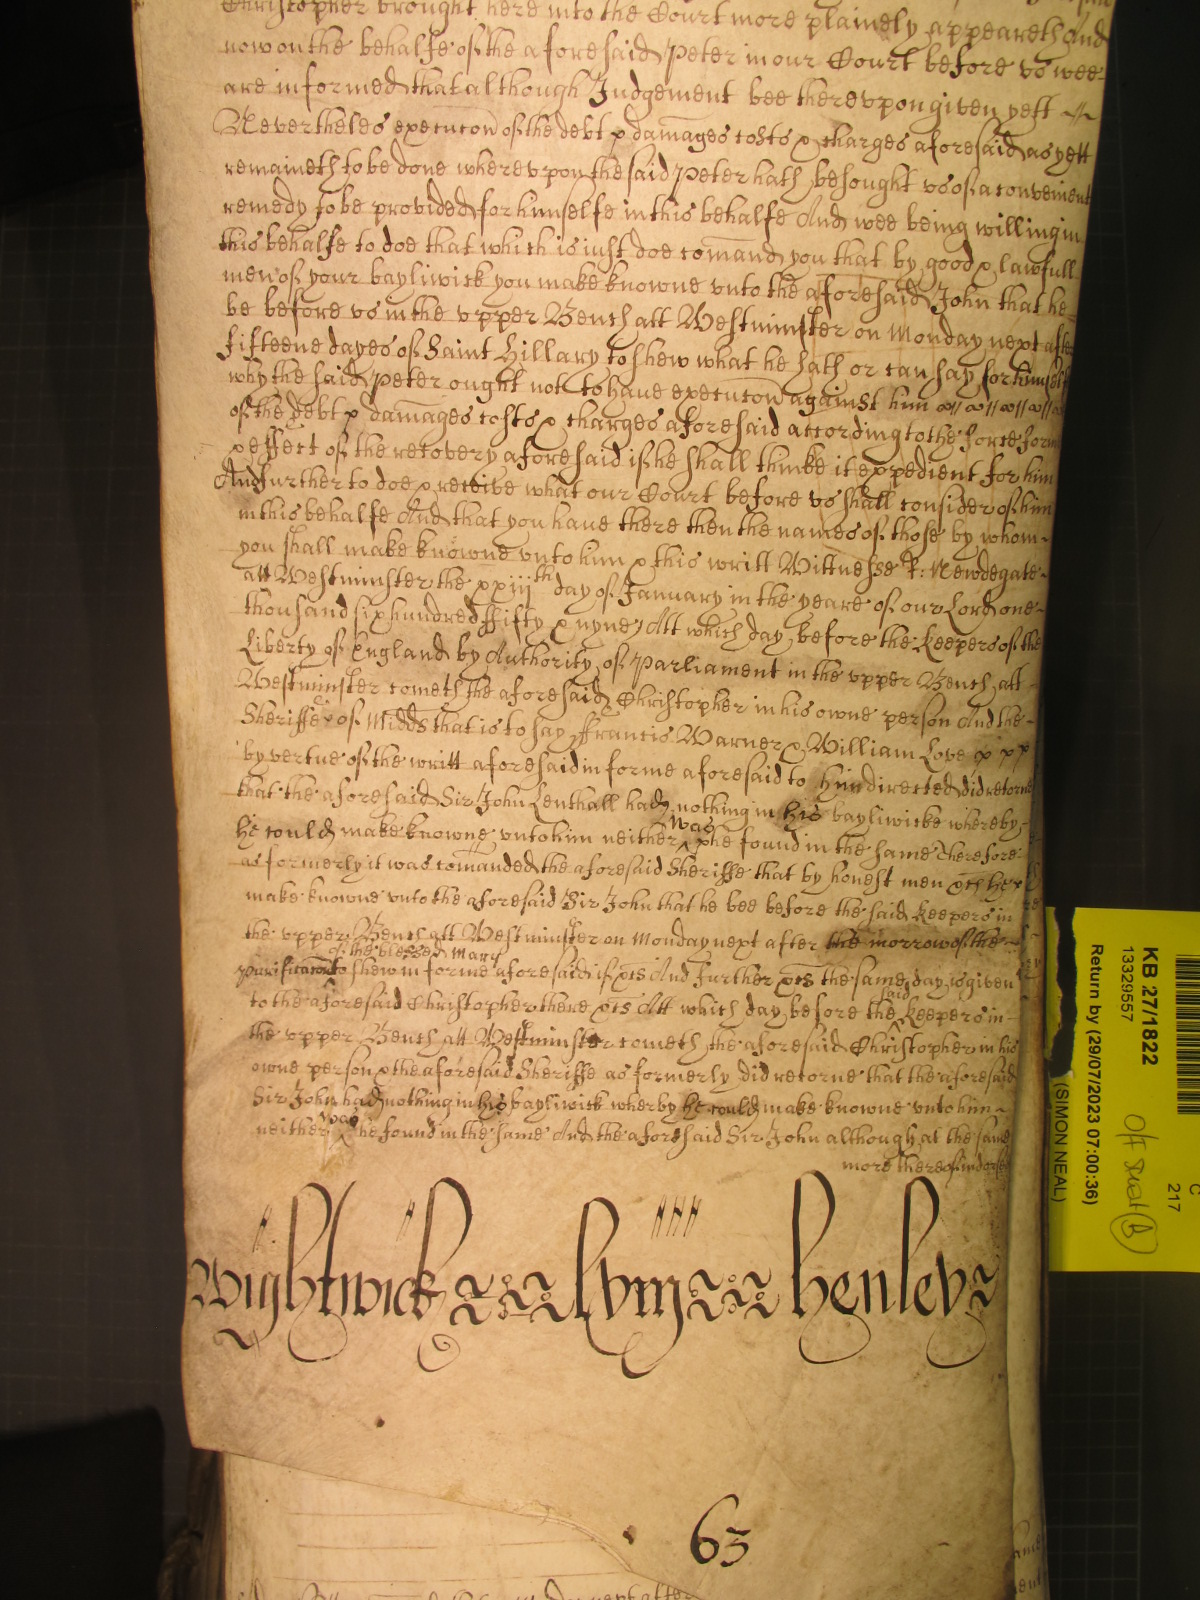 Christopher brought here into the Court more plainely appeareth And
now on the behalfe of the aforesaid Peter in our Court before vs wee
are informed that although Judgement bee therevpon given yett
Nevertheles execucon of the debt & damages costs & charges aforesaid as yett
remaineth to be done wherevpon the said Peter hath besought vs of a convenient
remedy to be provided for himselfe in this behalfe And wee being willing in
this behalfe to doe that which is iust doe comand you that by good & lawfull
men of your bayliwick you make knowne vnto the aforesaid John that he
be before vs in the vpper Bench att Westminster on Monday next after
fifteene dayes of Saint Hillary to shew what he hath or can say for himself
why the said Peter ought not to haue execucon against him
of the debt & damages costs & charges aforesaid according to the force forme
& effect of the recovery aforesaid if he shall thinke it expedient for him
And further to doe & receive what our Court before vs shall consider of him
in this behalfe And that you haue there then the names of those by whom
you shall make knowne vnto him & this writt Wittnesse R: Newdegate
att Westminster the xxiijth day of January in the yeare of our Lord one
thousand six hundred ffifty & nyne Att which day before the Keepers of the
Liberty of England by Authority of Parliament in the vpper Bench att
Westminster cometh the aforesaid Christopher in his owne person And the
Sheriffe of Midds that is to say ffrancis Warner & William Love
by vertue of the writt aforesaid in forme aforesaid to him directed did retorne
that the aforesaid Sir John Lenthall had nothing in his bayliwicke whereby
he could make knowne vnto him neither was he found in the same Therefore
as formerly it was comanded the aforesaid Sheriffe that by honest men &c he
make knowne vnto the aforesaid Sir John that he bee before the said Keepers in
the vpper Bench att Westminster on Monday next after the morrow of the
purificacon of the blessed Mary to shew in forme aforesaid if &c And further &c the same day is given
to the aforesaid Christopher there &c Att which day before the said Keepers in
the vpper Bench att Westminster cometh the aforesaid Christopher in his
owne person & the aforesaid Sheriffe as formerly did retorne that the aforesaid
Sir John had nothing in his bayliwick wherby he could make knowne vnto him
neither was he found in the same And the aforesaid Sir John although at the same
more thereof indorsed
Wightwick Lym Henley
63
KB 27/1822
13329557
Return by (29/07/2023 07:00:36)
(SIMON NEAL)
C
217